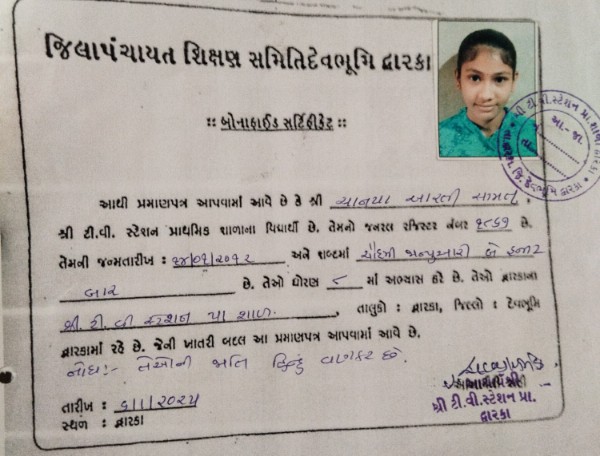 જિલાપંચાયત શિક્ષણ સમિતિદેવભૂમિ દ્વારકા
:: બોનાફાઈડ સર્ટિફીકેટ ::
આથી પ્રમાણપત્ર આપવામાં આવે છે કે શ્રી ચાનપા આરતી સામત,
શ્રી ટી.વી. સ્ટેશન પ્રાથમિક શાળાના વિદ્યાર્થી છે. તેમનો જનરલ રજિસ્ટર નંબર ૧૮૬૧ છે.
તેમની જન્મતારીખ : ૧૪/૦૧/૨૦૧૨ અને શબ્દમાં ચૌદમી જાન્યુઆરી બે હજાર
બાર છે. તેઓ ધોરણ ૮ માં અભ્યાસ કરે છે. તેઓ દ્વારકાના
શ્રી ટી વી સ્ટેશન પ્રા શાળા, તાલુકો : દ્વારકા, જિલ્લો : દેવભૂમિ
દ્વારકામાં રહે છે. જેની ખાતરી બદલ આ પ્રમાણપત્ર આપવામાં આવે છે.
નોંધ:- તેઓની જાતિ હિન્દુ વણકર છે.
તારીખ : ૬/૧/૨૦૨૫
સ્થળ : દ્વારકા
આચાર્યશ્રી
શ્રી ટી.વી.સ્ટેશન પ્રા.
દ્વારકા
શ્રી ટી.વી.સ્ટેશન પ્રા.શાળા
તા.દ્વારકા, જિ.દેવભૂમિ દ્વારકા